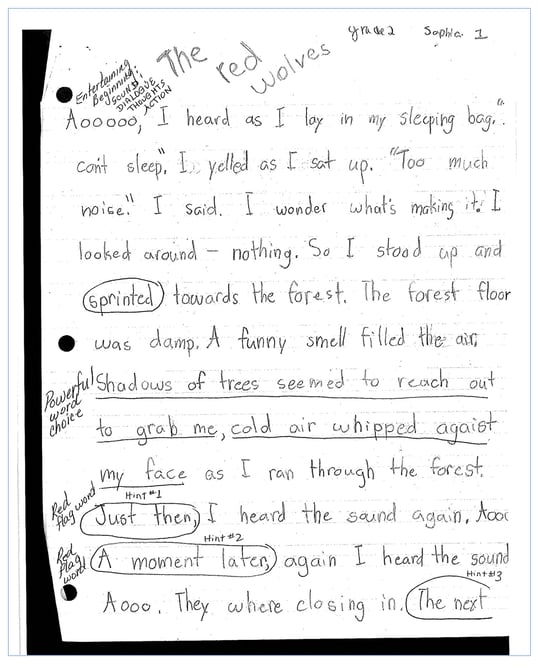 grade 2 Sophia 1
The red wolves
Entertaining
Beginning:
SOUND
DIALOGUE
THOUGHTS
ACTION
Aooooo, I heard as I lay in my sleeping bag. "
can't sleep". I yelled as I sat up. "Too much
noise." I said. I wonder what's making it. I
looked around – nothing. So I stood up and
sprinted towards the forest. The forest floor
was damp. A funny smell filled the air,
Powerful
word
choice
Shadows of trees seemed to reach out
to grab me, cold air whipped agaist
my face as I ran through the forest.
Red
flag word
Hint #1
Just then, I heard the sound again, Aooo
Hint #2
Red
flag
word
A moment later, again I heard the sound
Hint #3
Aooo. They where closing in. The next